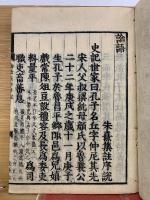 論語
朱熹集註序說
史記世家曰孔子名丘字仲尼其先
宋人父叔梁紇母顏氏以魯襄公
二十二年庚戌之歲十一月庚子
生孔子於魯昌平鄉陬邑為兒嬉
戲常陳俎豆設禮容及長為委吏
料量平 為司
職吏畜蕃息